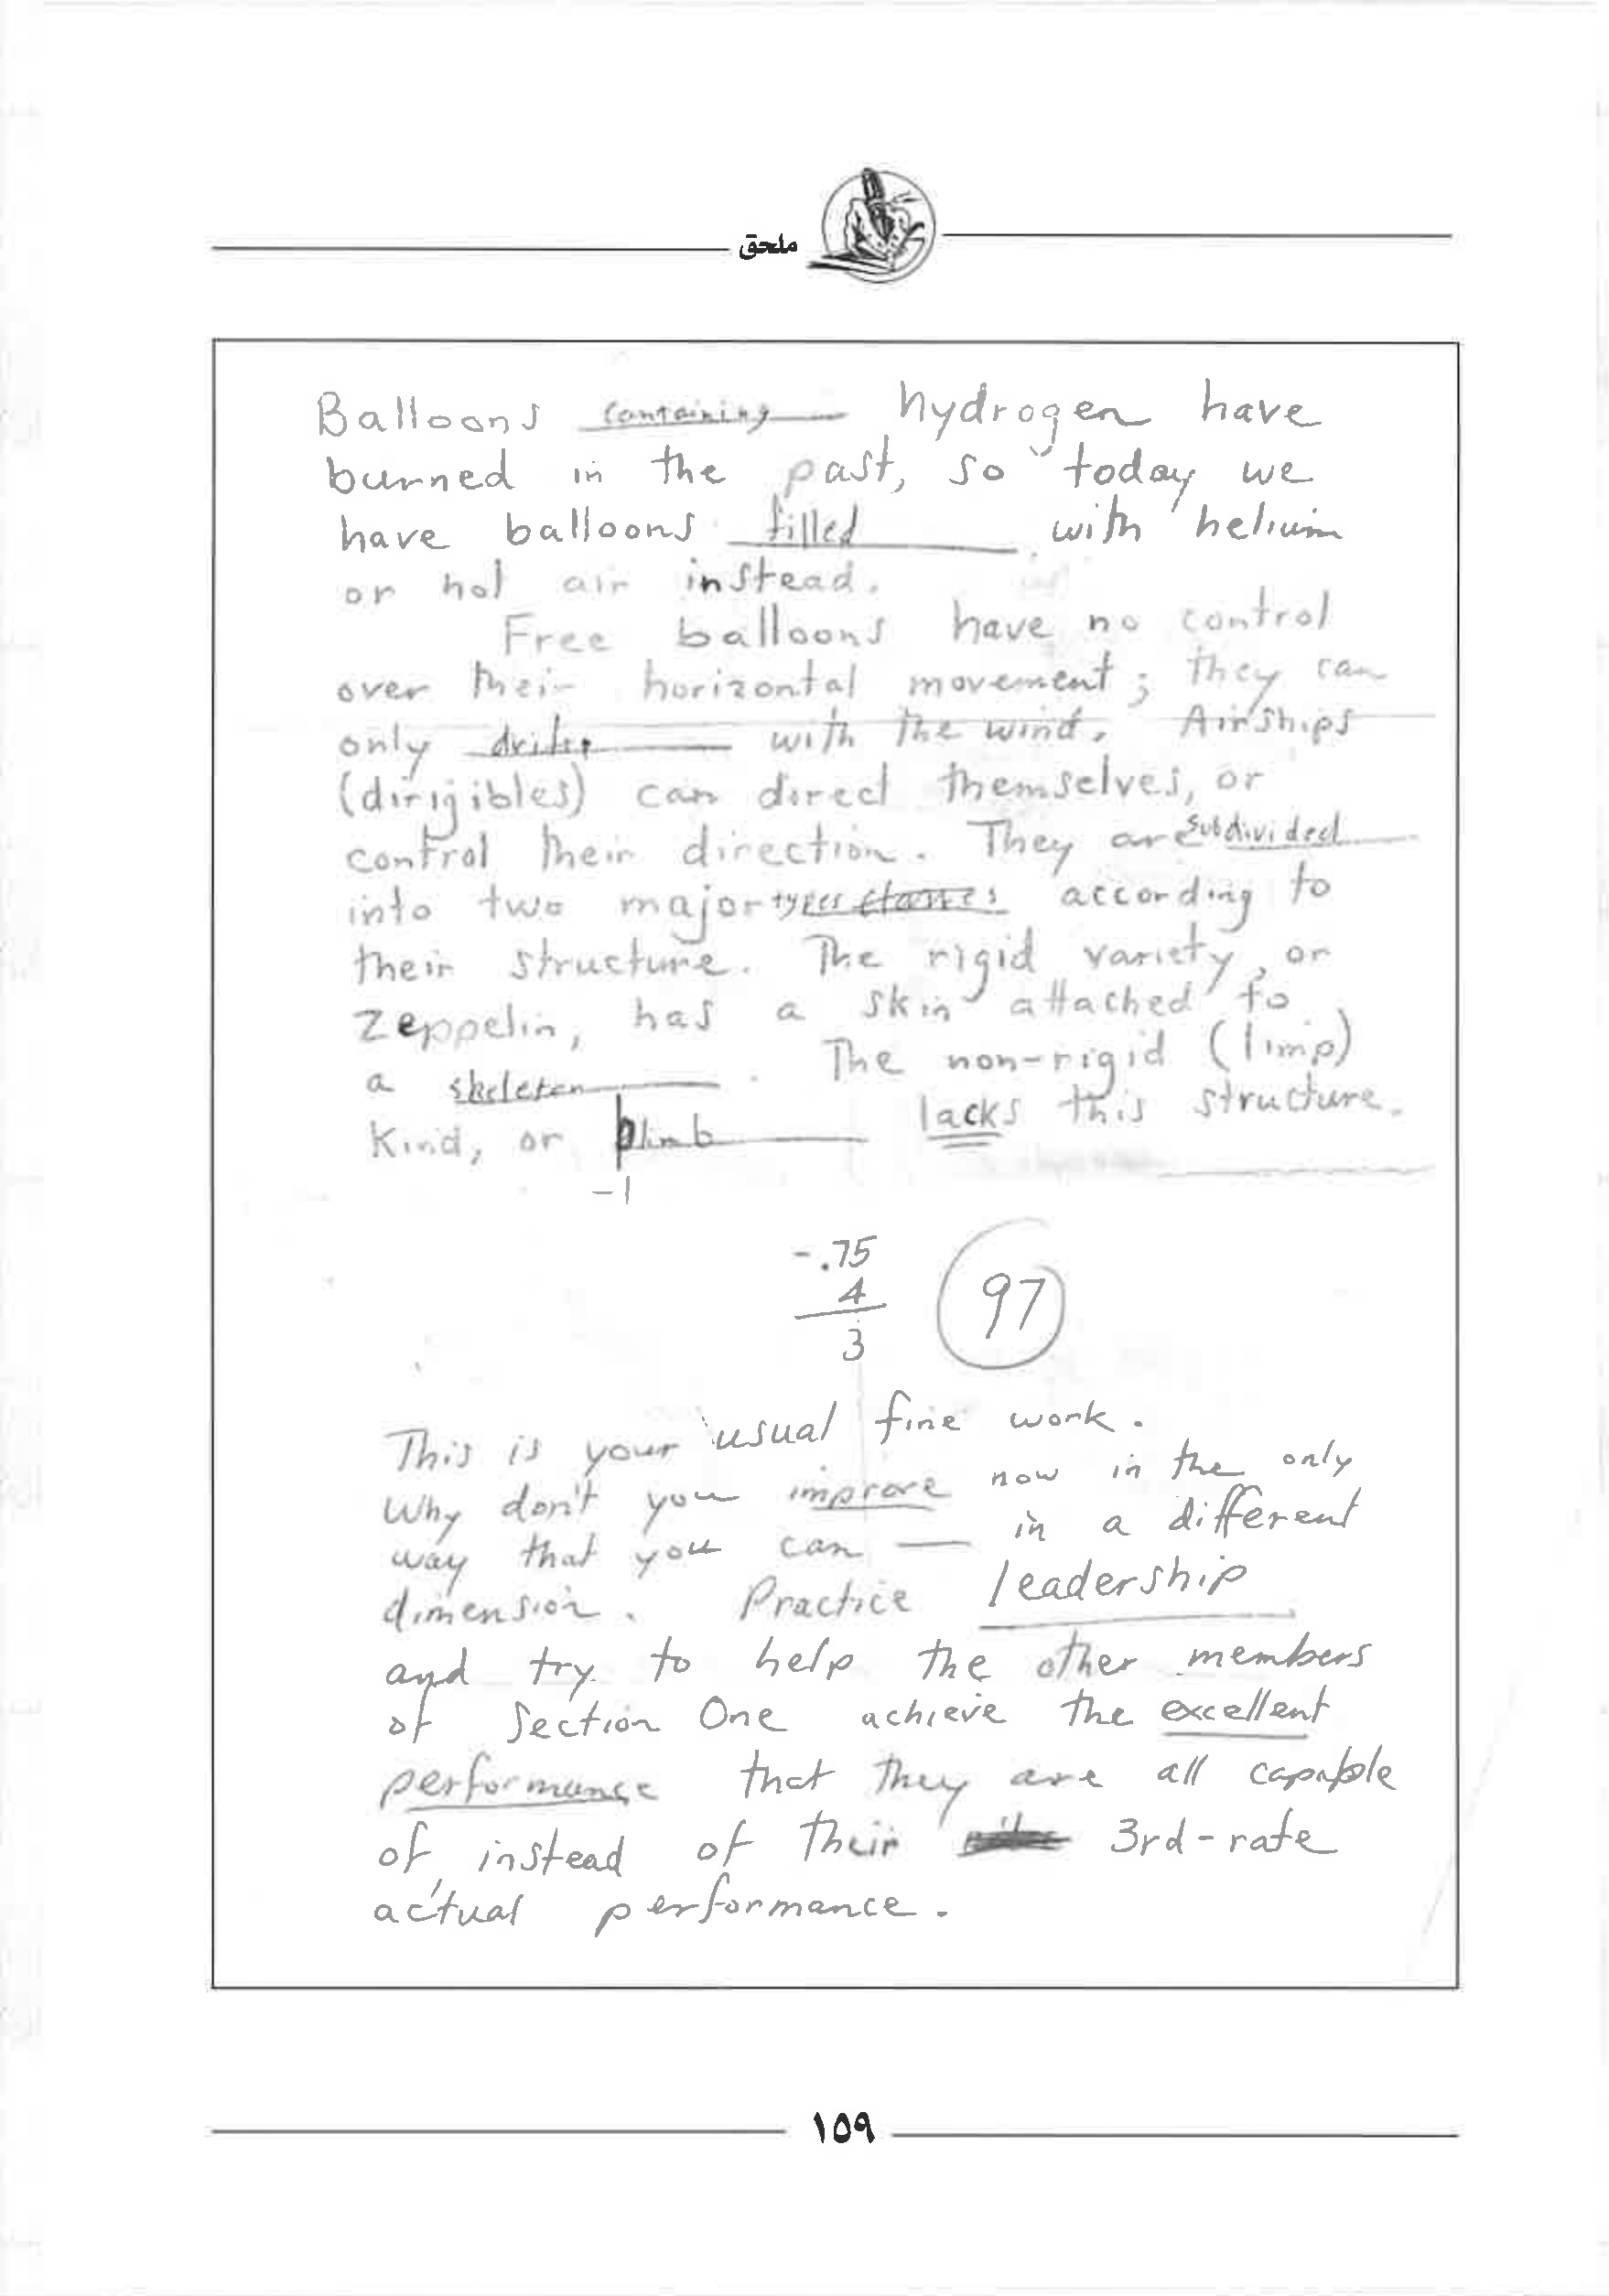 ملحق
Balloons containing hydrogen have
burned in the past, so today we
have balloons filled with helium
or hot air instead.
Free balloons have no control
over their horizontal movement; they can
only with the wind. Airships
(dirigibles) can direct themselves, or
control their direction. They are subdivided
into two major types according to
their structure. The rigid variety, or
zeppelin, has a skin attached to
a skeleton. The non-rigid (limp)
kind, or blimb lacks this structure.
-1
-.75
4
3
97
This is your usual fine work.
Why don't you improve now in the only
way that you can — in a different
dimension. Practice leadership
and try to help the other members
of Section One achieve the excellent
performance that they are all capable
of, instead of their 3rd-rate
actual performance.
١٥٩